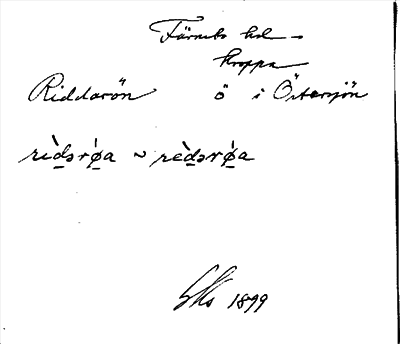 Färnebo hd –
Kroppa
Riddarön ö i Östersjön
rìdərǿa ~ rèdərǿa
1899